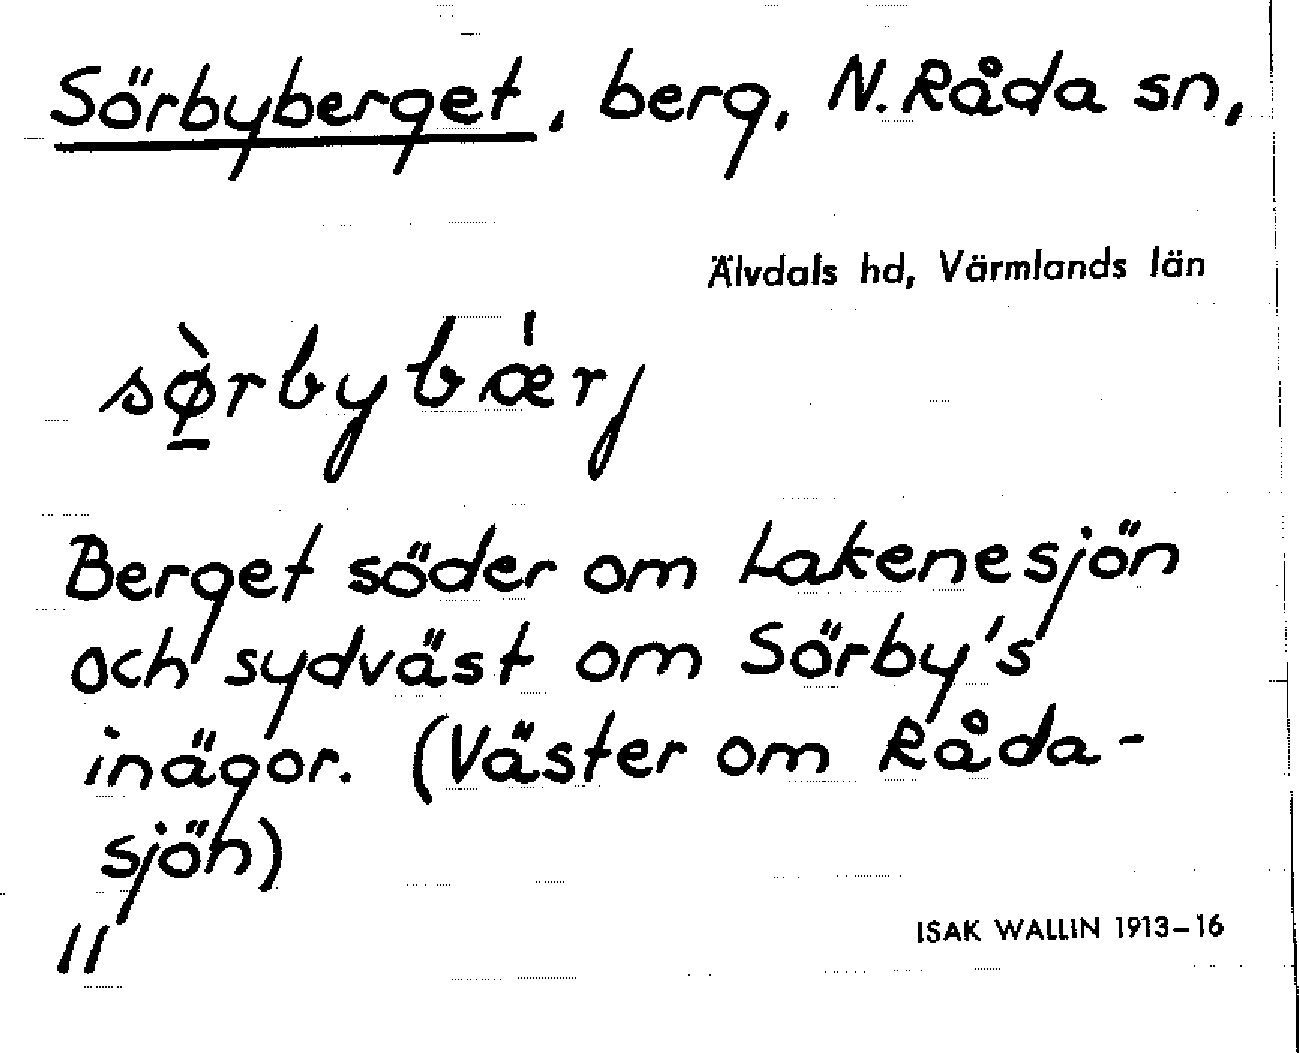 Sörbyberget, berg, N. Råda sn,
Älvdals hd, Värmlands län
sø̱̀rbybǽrj
Berget söder om Lakenesjön
och sydväst om Sörby's
inägor. (Väster om Råda-
sjön)
11
ISAK WALLIN 1913–16